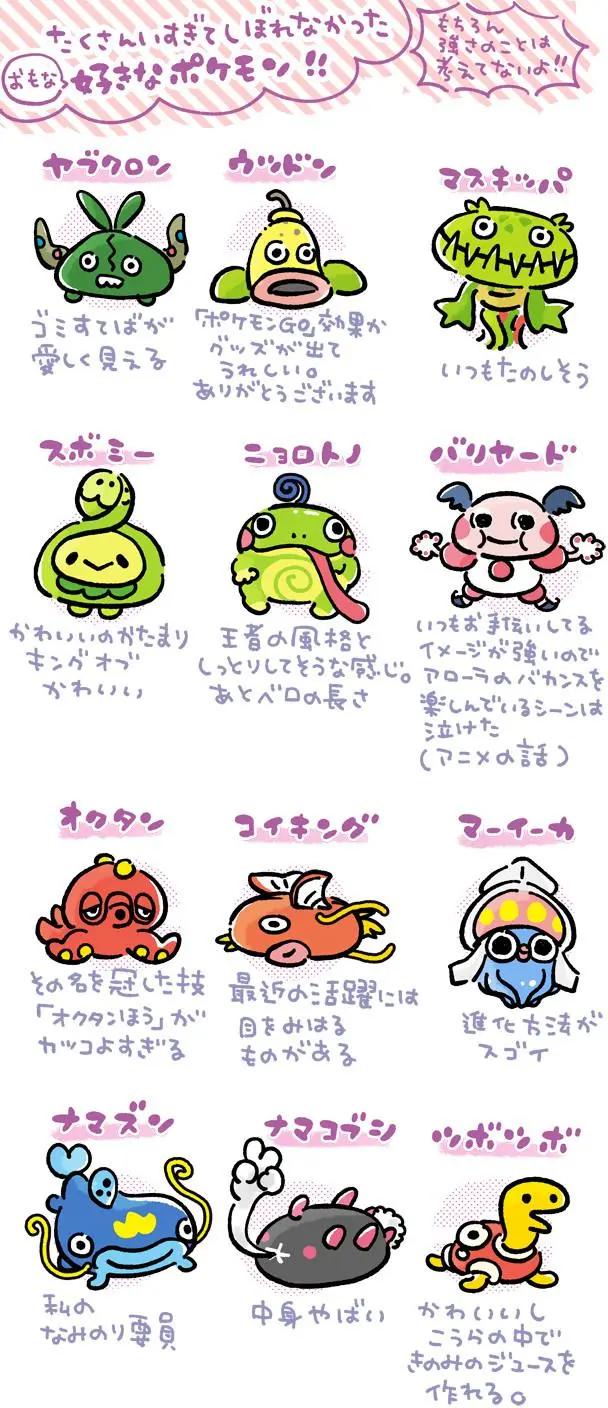 たくさんいすぎてしぼれなかった
おもな
好きなポケモン!!
もちろん
強さのことは
考えてないよ!!
ヤブクロン
ゴミすてばが
愛しく見える
ウツドン
「ポケモンGO」効果か
グッズが出て
うれしい。
ありがとうございます
マスキッパ
いつもたのしそう
スボミー
かわいいのかたまり
キングオブ
かわいい
ニョロトノ
王者の風格と
しっとりしてそうな感じ。
あとベロの長さ
バリヤード
いつもお手伝いしてる
イメージが強いので
アローラのバカンスを
楽しんでいるシーンは
泣けた
(アニメの話)
オクタン
その名を冠した技
「オクタンほう」が
カッコよすぎる
コイキング
最近の活躍には
目をみはる
ものがある
マーイーカ
進化方法が
スゴイ
ナマズン
私の
なみのり要員
ナマコブシ
中身やばい
ツボツボ
かわいいし
こうらの中で
きのみのジュースを
作れる。